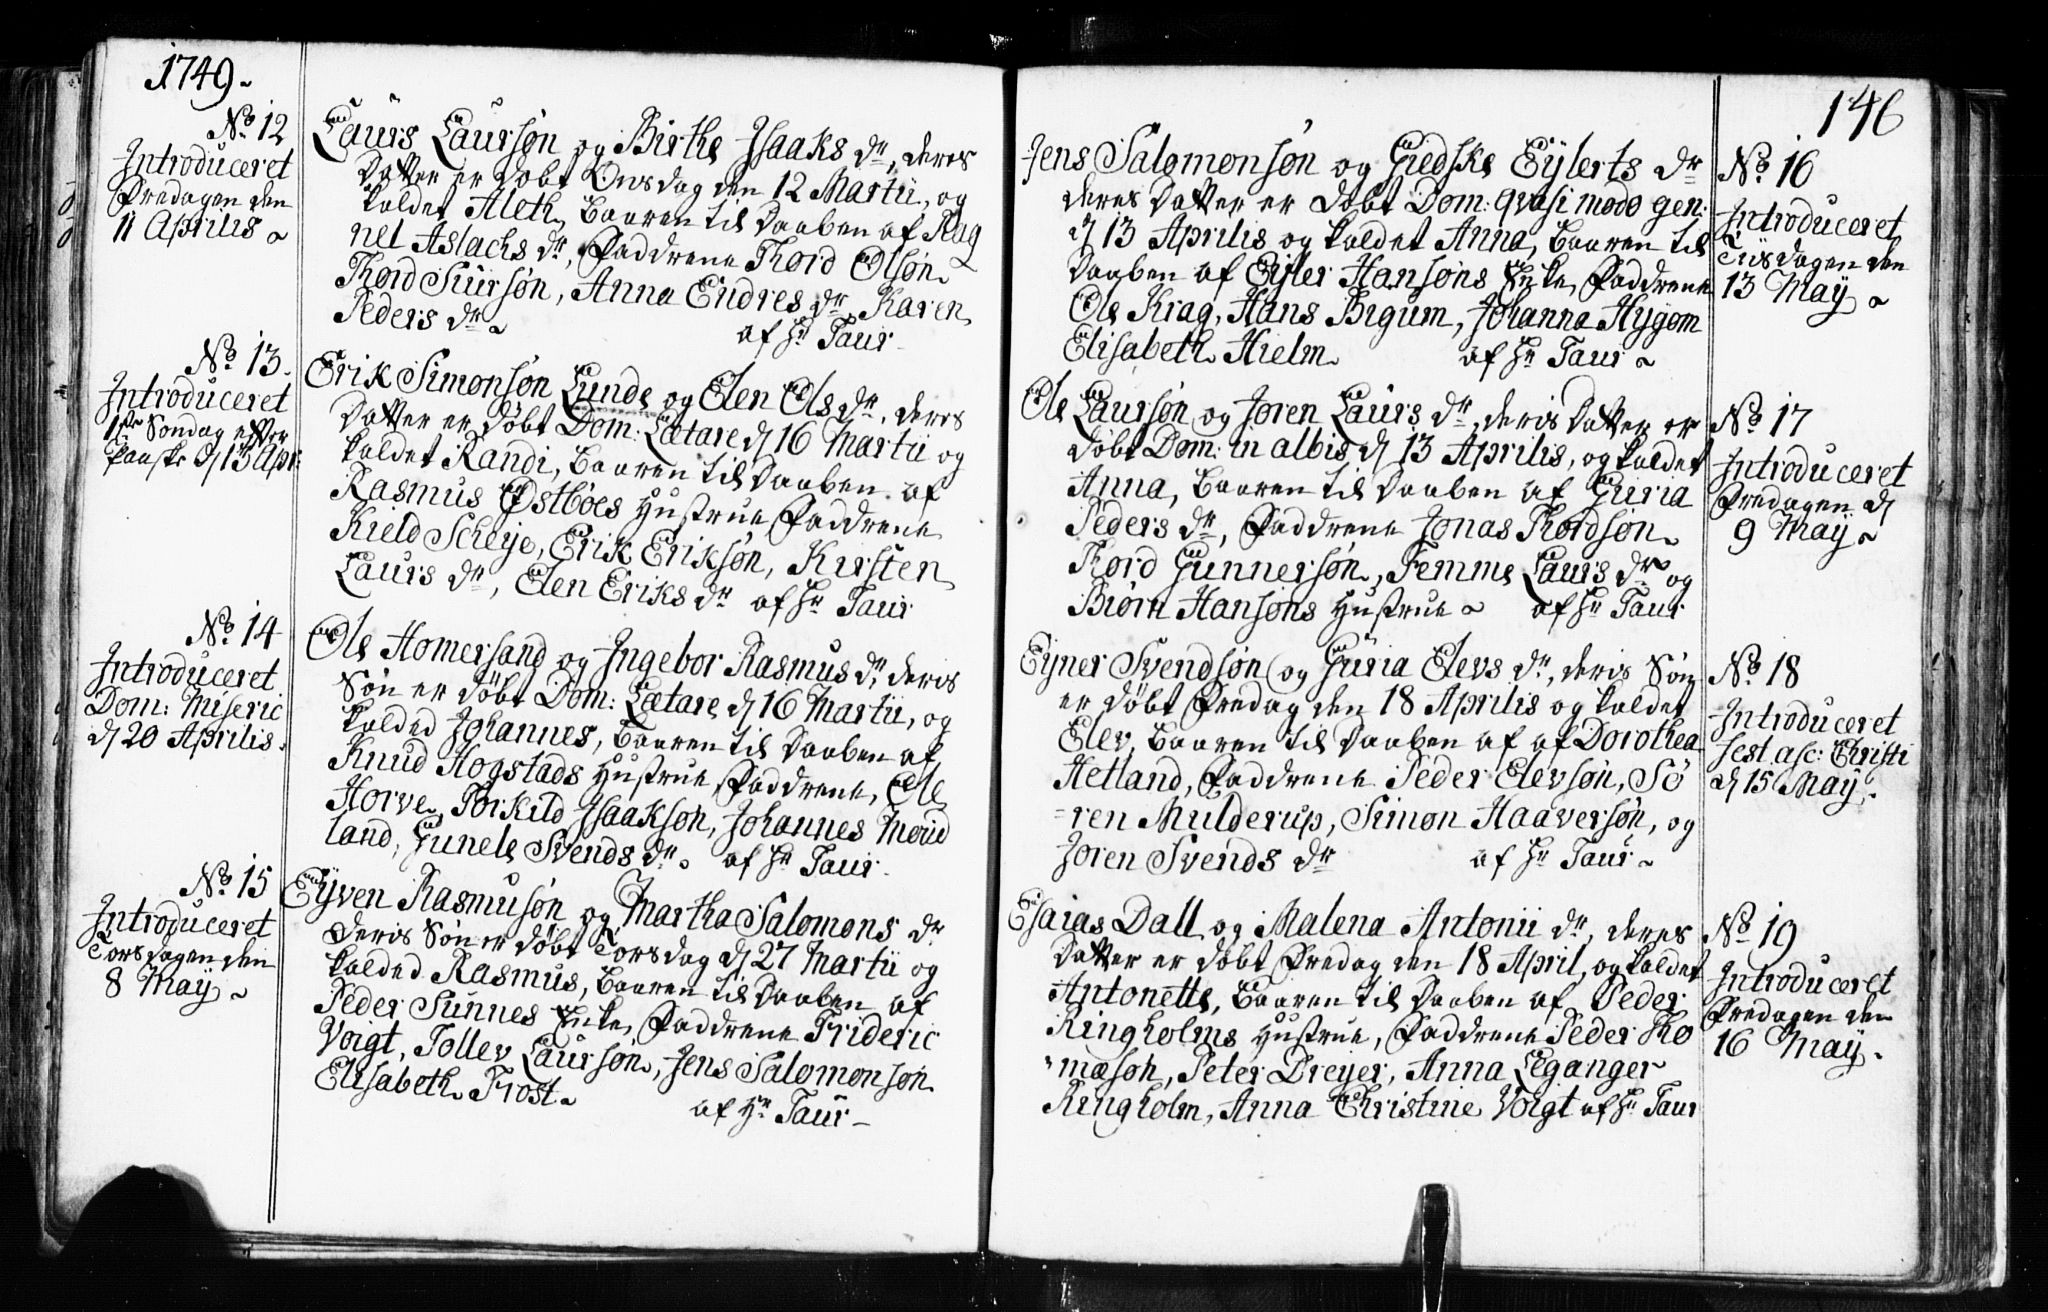 1749.
No. 12
Introduceret
Fredagen den
11 Aprilis
Laurs Laursøn og Birthe Isaaks dr, deres
Datter er døbt Onsdag den 12 Martii, og
kaldet Aleth, Baaren til Daaben af Rag
nel Aslachs dr, Faddrene Thord Olsøn
Thord Siursøn, Anna Endres dr, Karen
Peders dr
af Hr Taur
No. 13.
Introduceret
1ste Søndag efter
Paaske d 13 Apr:
Erik Simonsøn Lunde og Elen Ols dr, deres
Datter er døbt Dom: Lætare d 16 Martii og
kaldet Randi, Baaren til Daaben af
Rasmus Østbøes Hustrue, Faddrene
Kield Scheye, Erik Eriksøn, Kirsten
Laurs dr, Elen Eriks dr af Hr Taur
No. 14
Introduceret
Dom: Miseric
d 20 Aprilis.
Ole Homersand og Ingebor Rasmus dr, deris
Søn er døbt Dom: Lætare d 16 Martii, og
kalded Johannes, Baaren til Daaben af
Knud Hogstads Hustrue, Faddrene, Ole
Horve, Torkild Isaaksøn, Johannes Meru
land, Gunele Svends dr. af Hr Taur.
No. 15
Introduceret
Torsdagen den
8 May
Eyven Rasmusøn og Martha Salomons dr
deris Søn er døbt Torsdag d 27 Martii og
kalded Rasmus, Baaren til Daaben af
Peder Sunnes Enke, Faddrene Frideric
Voigt, Tollev Laursøn, Jens Salomonsøn
Elisabeth Frost.
af Hr Taur
146
Jens Salomonsøn og Giedske Eylerts dr
deres Datter er døbt Dom: qvasimodo gen:
d 13 Aprilis og kaldet Anna, Baaren til
Daaben af Eyler Hansøns Enke, Faddrene
Ole Krag, Hans Bigum, Johanna Hygom
Elisabeth Hielm
af Hr Taur
No. 16
Introduceret
Tiisdagen den
13 May
Ole Laursøn og Joren Laurs dr, deris Datter er
døbt Dom: in albis d 13 Aprilis, og kaldet
Anna, Baaren til Daaben af Guria
Peders dr, Faddrene Jonas Thordsøn
Thord Gunnersøn, Femme Laurs dr og
Biørn Hansøns Hustrue af Hr Taur
No. 17
Introduceret
Fredagen d
9 May
Eyner Svendsøn og Guria Elevs dr, deris Søn
er døbt Fredag den 18 Aprilis og kaldet
Elev, Baaren til Daaben af af Dorothea
Hetland, Faddrene Peder Elevsøn, Sö
=ren Mulderup, Simon Haaversøn, og
Joren Svends dr
af Hr Taur
No. 18
Introduceret
Fest. asc: Christi
d 15 May.
Esaias Dall og Malena Antonii dr, deres
Datter er døbt Fredag den 18 April, og kaldet
Antonette, Baaren til Daaben af Peder
Ringholms Hustrue, Faddrene Peder Tho
=mæsøn, Peter Dreyer, Anna Leganger
Ringholm, Anna Christine Voigt af Hr Taur
No. 19
Introduceret
Fredagen den
16 May.